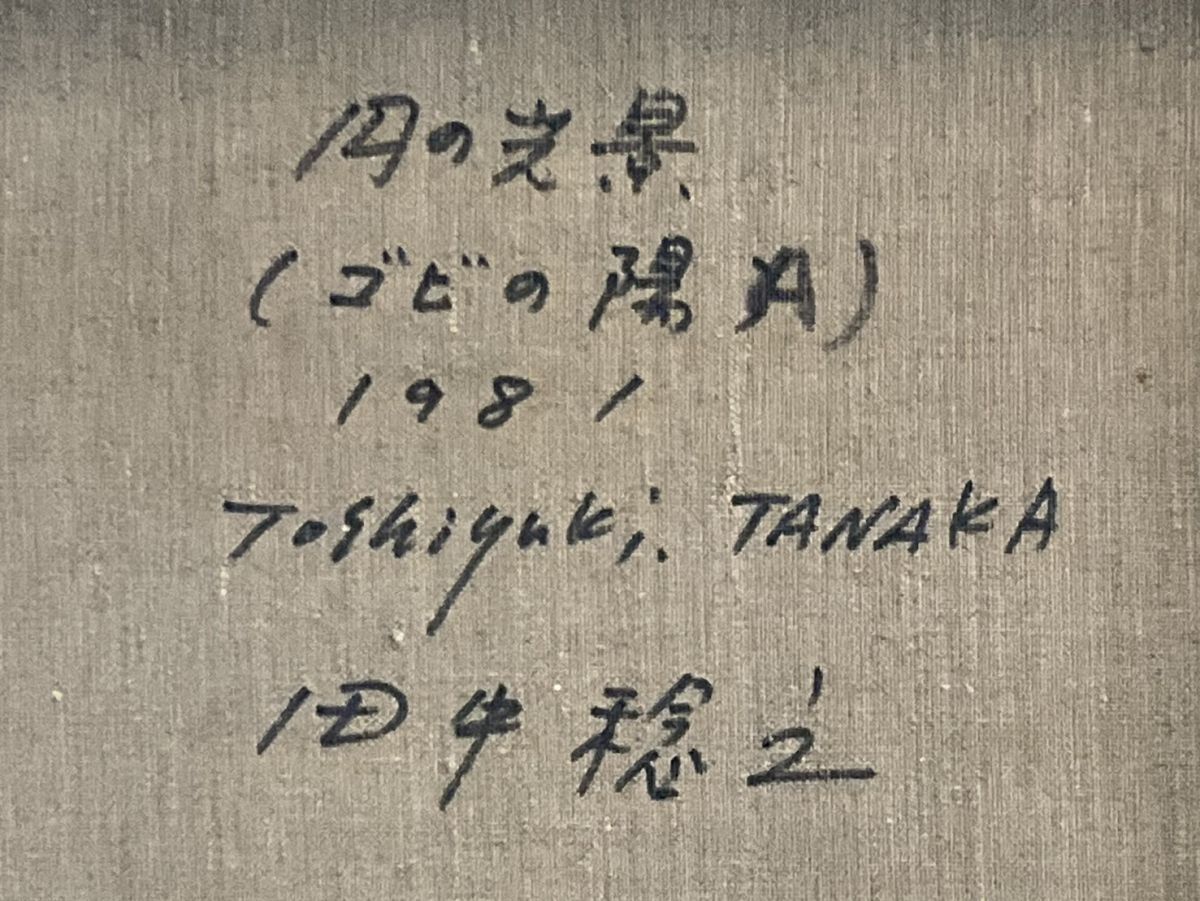 円の光景
(ゴビの陽A)
1981
Toshiyuki. TANAKA
田中稔之